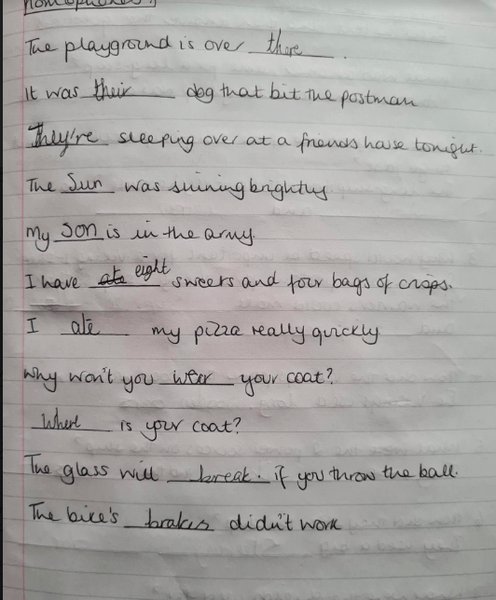 Homophones!
The playground is over there.
It was their dog that bit the postman
They're sleeping over at a friends house tonight.
The Sun was shining brightly
My son is in the army.
I have ate eight sweets and four bags of crisps.
I ate my pizza really quickly
Why won't you wear your coat?
Where is your coat?
The glass will break. if you throw the ball.
The bike's brakes didn't work